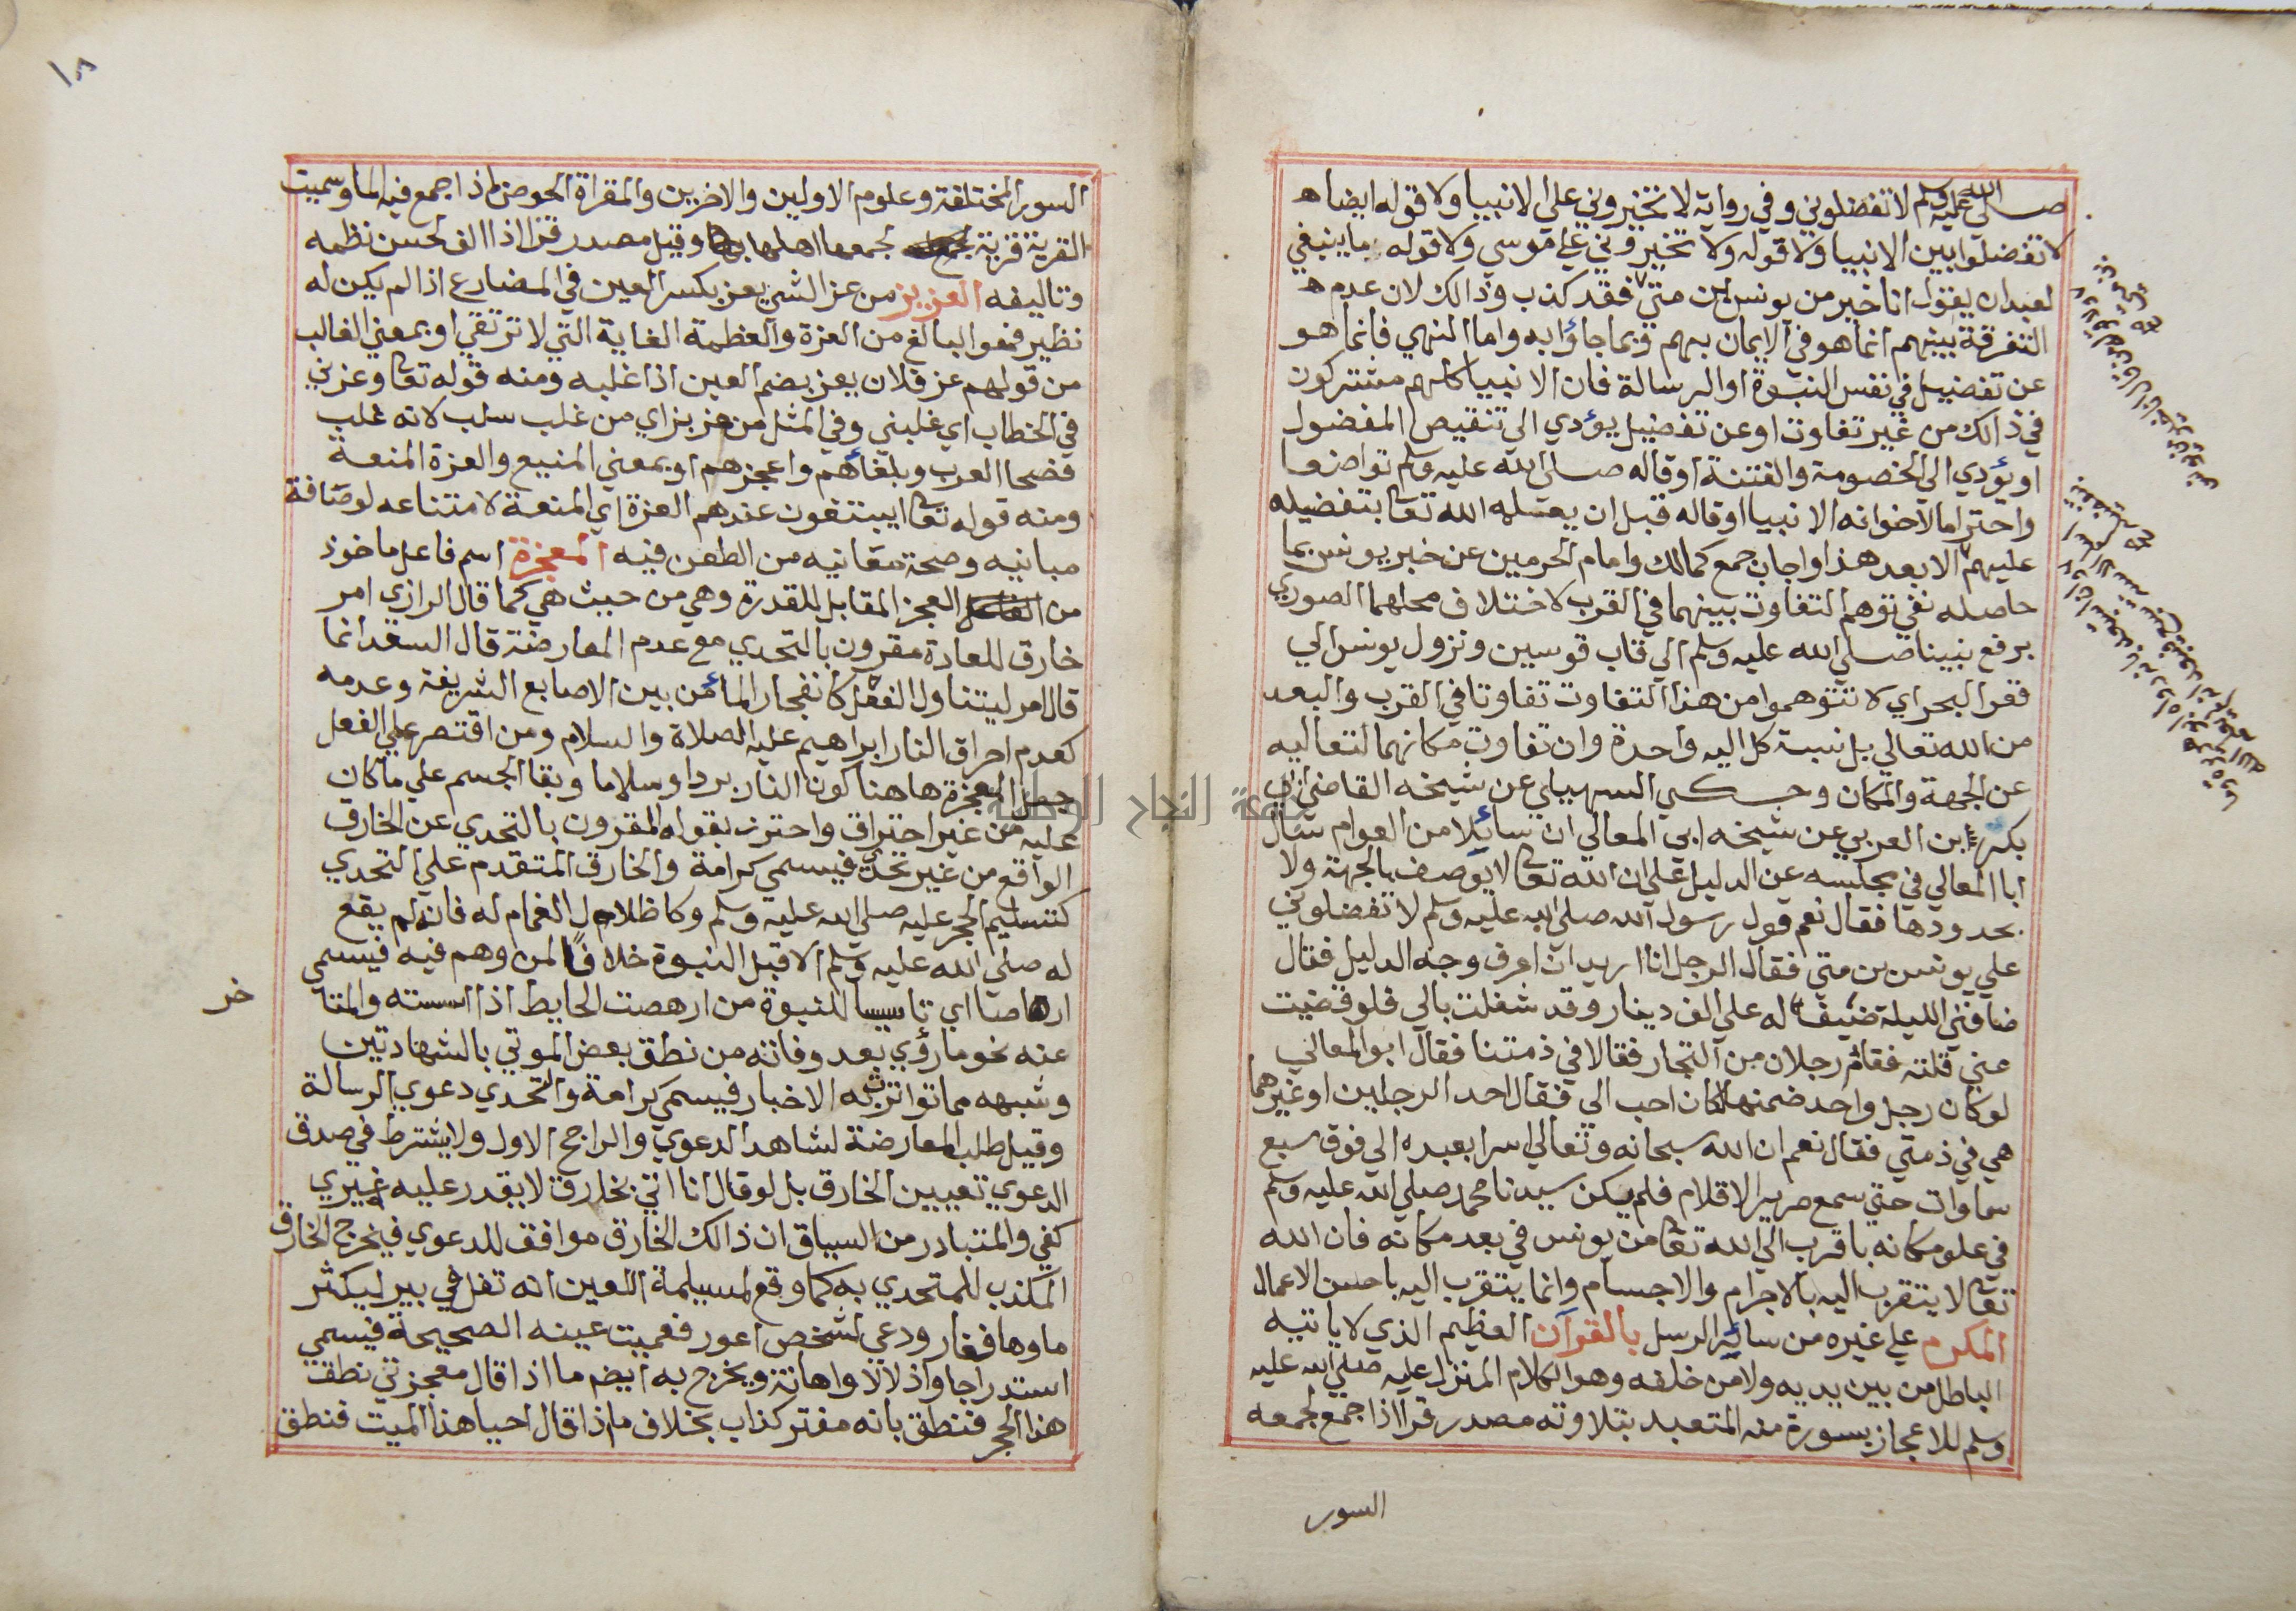 صلى الله عليه وسلم لا تفضلوني وفي رواية لا تخيروني علي الانبيا ولا قوله ايضا ه
لا تفضلوا بين الانبيا ولا قوله ولا تخيروني علي موسي ولا قوله ما ينبغي
لعبد ان يقول انا خير من يونس ابن متي فقد كذب وذالك لان عدم ه
التفرقة بينهم انما هو في الايمان بهم وبما جاؤا به واما النهي فانما هو
عن تفضيل في نفس النبوة او الرسالة فان الانبيا كلهم مشتركون
في ذالك من غير تفاوت او عن تفضيل يؤدي الي تنقيص المفضول
او يؤدي الي الخصومة والفتنة او قاله صلي الله عليه وسلم تواضعا
واحتراما لاخوانه الانبيا او قاله قبل ان يعلمه الله تعا بتفضيله
عليهم الا بعد هذا واجاب جمع كمالك وامام الحرمين عن خبر يونس بما
حاصله نفي توهم التفاوت بينهما في القرب لاختلاف محلهما الصوري
برفع نبينا صلي الله عليه وسلم الي قاب قوسين ونزول يونس الي
قعر البحر اي لا تتوهموا من هذا التفاوت تفاوتا في القرب والبعد
من الله تعالي بل نسبة كل اليه واحدة وان تفاوت مكانهما لتعاليه
عن الجهة والمكان وحكي السهيلي عن شيخه القاضي ابي
بكر ابن العربي عن شيخه ابي المعالي ان سائلا من العوام سال
ابا المعالي في مجلسه عن الدليل علي ان الله تعا لا يوصف بالجهة ولا
بحدودها فقال نعم قول رسول الله صلي الله عليه وسلم لا تفضلوني
علي يونس بن متي فقال الرجل انا اريد ان اعرف وجه الدليل فقال
ضافني الليلة ضيف له علي الف دينار وقد شغلت بالي فلو قضيت
عني قلته فقام رجلان من التجار فقالا في ذمتنا فقال ابو المعالي
لو كان رجل واحد ضمنها لكان احب الي فقال احد الرجلين او غيرهما
هي في ذمتي فقال نعم ان الله سبحانه وتعالي اسرا بعبده الي فوق سبع
سماوات حتي سمع صرير الاقلام فلم يكن سيدنا محمد صلي الله عليه وسلم
في علو مكانه باقرب الي الله تعا من يونس في بعد مكانه فان الله
تعا لا يتقرب اليه بالاجرام والاجسام وانما يتقرب اليه باحسن الاعمال
المكرم علي غيره من سائر الرسل بالقرآن العظيم الذي لا ياتيه
الباطل من بين يديه ولا من خلفه وهو الكلام المنزل عليه صلي الله عليه
وسلم للاعجاز بسورة منه المتعبد بتلاوته مصدر قرا اذا جمع لجمعه
السور
١٨
السور المختلفة وعلوم الاولين والاخرين والمقراة الحوض اذا جمع فيه الما وسميت
القرية قرية لجمعها اهلها بها وقيل مصدر قرا اذا الف لحسن نظمه
وتاليفه العزيز من عز الشي يعز بكسر العين في المضارع اذا لم يكن له
نظير فهو البالغ من العزة والعظمة الغاية التي لا ترتقي او بمعني الغالب
من قولهم عز فلان يعز بضم العين اذا غلبه ومنه قوله تعا وعزني
في الخطاب اي غلبني وفي المثل من عز بز اي من غلب سلب لانه غلب
فصحا العرب وبلغائهم واعجزهم او بمعني المنيع والعزة المنعة
ومنه قوله تعا ايبتغون عندهم العزة اي المنعة لامتناعه لوصافة
مبانيه وصحة معانيه من الطعن فيه المعجزة اسم فاعل ماخوذ
من العجز المقابل للقدرة وهي من حيث هي كما قال الرازي امر
خارق للعادة مقرون بالتحدي مع عدم المعارضة قال السعد انما
قال امر ليتناول الفعل كانفجار الماء من بين الاصابع الشريفة وعدمه
كعدم احراق النار ابراهيم عليه الصلاة والسلام ومن اقتصر علي الفعل
جعل المعجزة هاهنا كون النار بردا وسلاما وبقا الجسم علي ما كان
عليه من غير احتراق واحترز بقوله المقرون بالتحدي عن الخارق
الواقع من غير تحد فيسمي كرامة والخارق المتقدم علي التحدي
كتسليم الحجر عليه صلي الله عليه وسلم وكاظلال الغمام له فانه لم يقع
له صلي الله عليه وسلم الا قبل النبوة خلافا لمن وهم فيه فيسمي
ارهاصا اي تاسيسا للنبوة من ارهصت الحايط اذا اسسته والمتا
خر
عنه نحو ما رؤي بعد وفاته من نطق بعض الموتي بالشهادتين
وشبهه مما تواترت به الاخبار فيسمي كرامة والتحدي دعوي الرسالة
وقيل طلب المعارضة لشاهد الدعوي والراجح الاول ولا يشترط في صدق
الدعوي تعيين الخارق بل لو قال انا اتي بخارق لا يقدر عليه غيري
كفي والمتبادر من السياق ان ذالك الخارق موافق للدعوي فيخرج الخارق
المكذب للمتحدي به كما وقع لمسيلمة اللعين انه تفل في بير ليكثر
ماوها فغار ودعي لشخص اعور فعميت عينه الصحيحة فيسمي
استدراجا واذلالا واهانة ويخرج به ايضم ما اذا قال معجزتي نطق
هذا الحجر فنطق بانه مفتر كذاب بخلاف ما اذا قال احيا هذا الميت فنطق